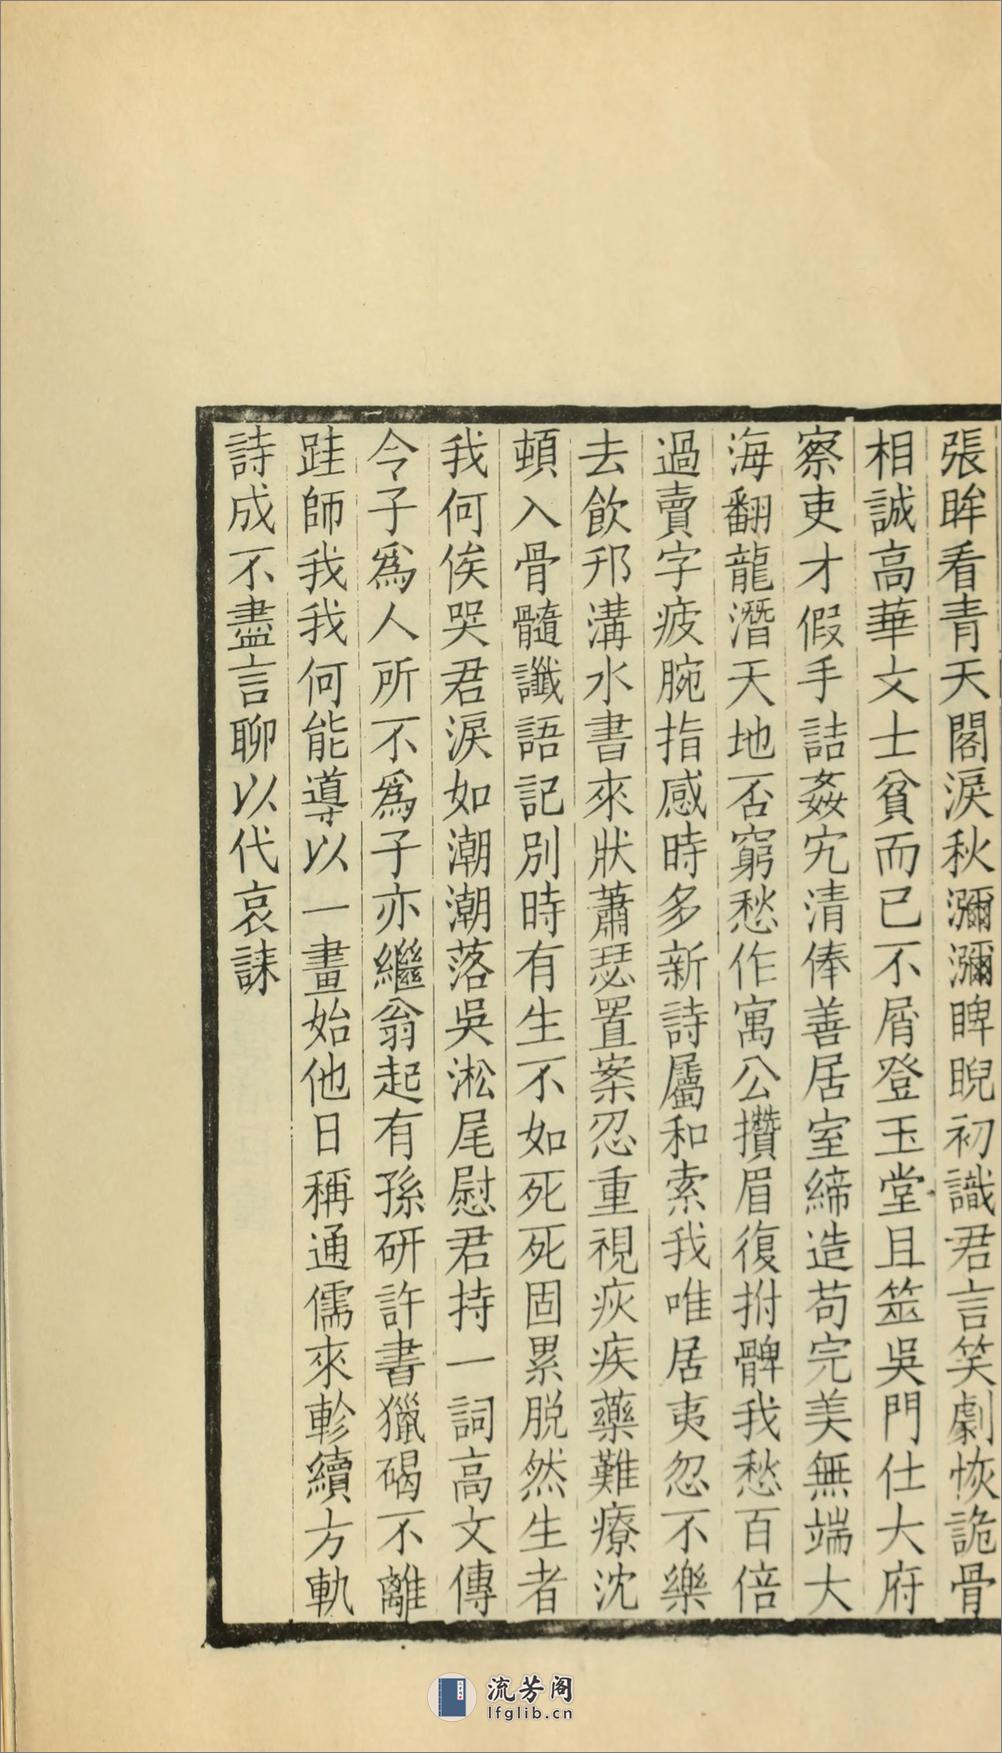 張眸看青天閣淚秋瀰瀰睥睨初識君言笑劇恢詭骨
相誠高華文士貧而已不屑登玉堂且筮吳門仕大府
察吏才假手詰姦宄清俸善居室締造苟完美無端大
海翻龍潛天地否窮愁作寓公攢眉復拊髀我愁百倍
過賣字疲腕指感時多新詩屬和索我唯居夷忽不樂
去飲邗溝水書來狀蕭瑟置案忍重視疢疾藥難療沈
頓入骨髓讖語記別時有生不如死死固累脫然生者
我何俟哭君淚如潮潮落吳淞尾慰君持一詞高文傳
令子爲人所不爲子亦繼翁起有孫研許書獵碣不離
跬師我我何能導以一畫始他日稱通儒來軫續方軌
詩成不盡言聊以代哀誄
流芳阁
lfglib.cn